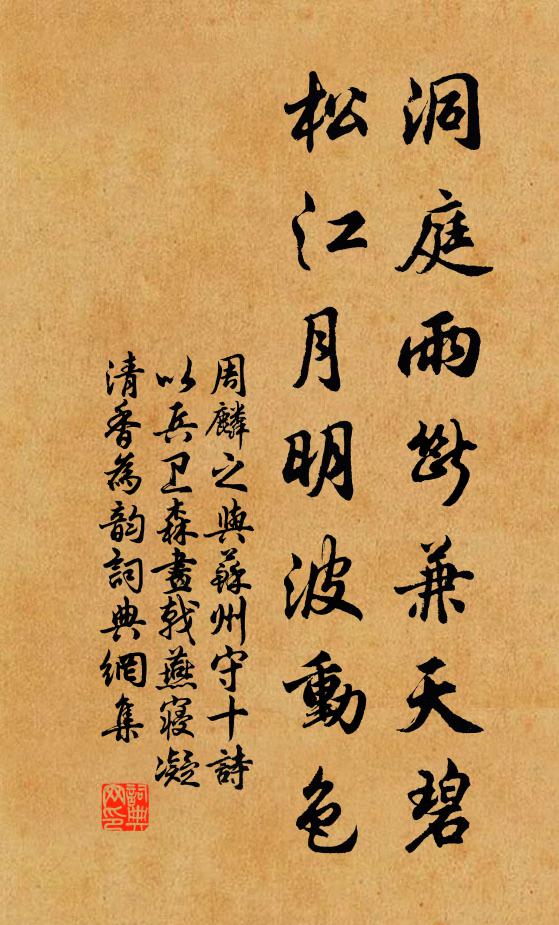 洞庭雨斷兼天碧
松江月明波動色
周麟之與蘇州守十詩
以兵卫森畫戟燕寢凝
清香為韵詞典網集
詞典網印